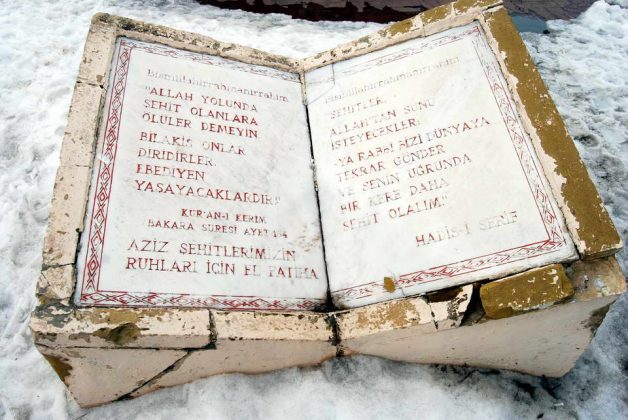 bismillahirrahmanirrahim
"ALLAH YOLUNDA
ŞEHİT OLANLARA
ÖLÜLER DEMEYİN
BİLAKİS ONLAR
DİRİDİRLER.
EBEDİYEN
YAŞAYACAKLARDIR"
KUR'AN-I KERİM
BAKARA SURESİ AYET 154
AZİZ ŞEHİTLERİMİZİN
RUHLARI İÇİN EL FATİHA
bismillahirrahmanirrahim
"ŞEHİTLER,
ALLAH'TAN ŞUNU
İSTEYECEKLER:
-YA RABBİ BİZİ DÜNYAYA
TEKRAR GÖNDER
VE SENİN UĞRUNDA
BİR KERE DAHA
ŞEHİT OLALIM."
HADİS-İ ŞERİF